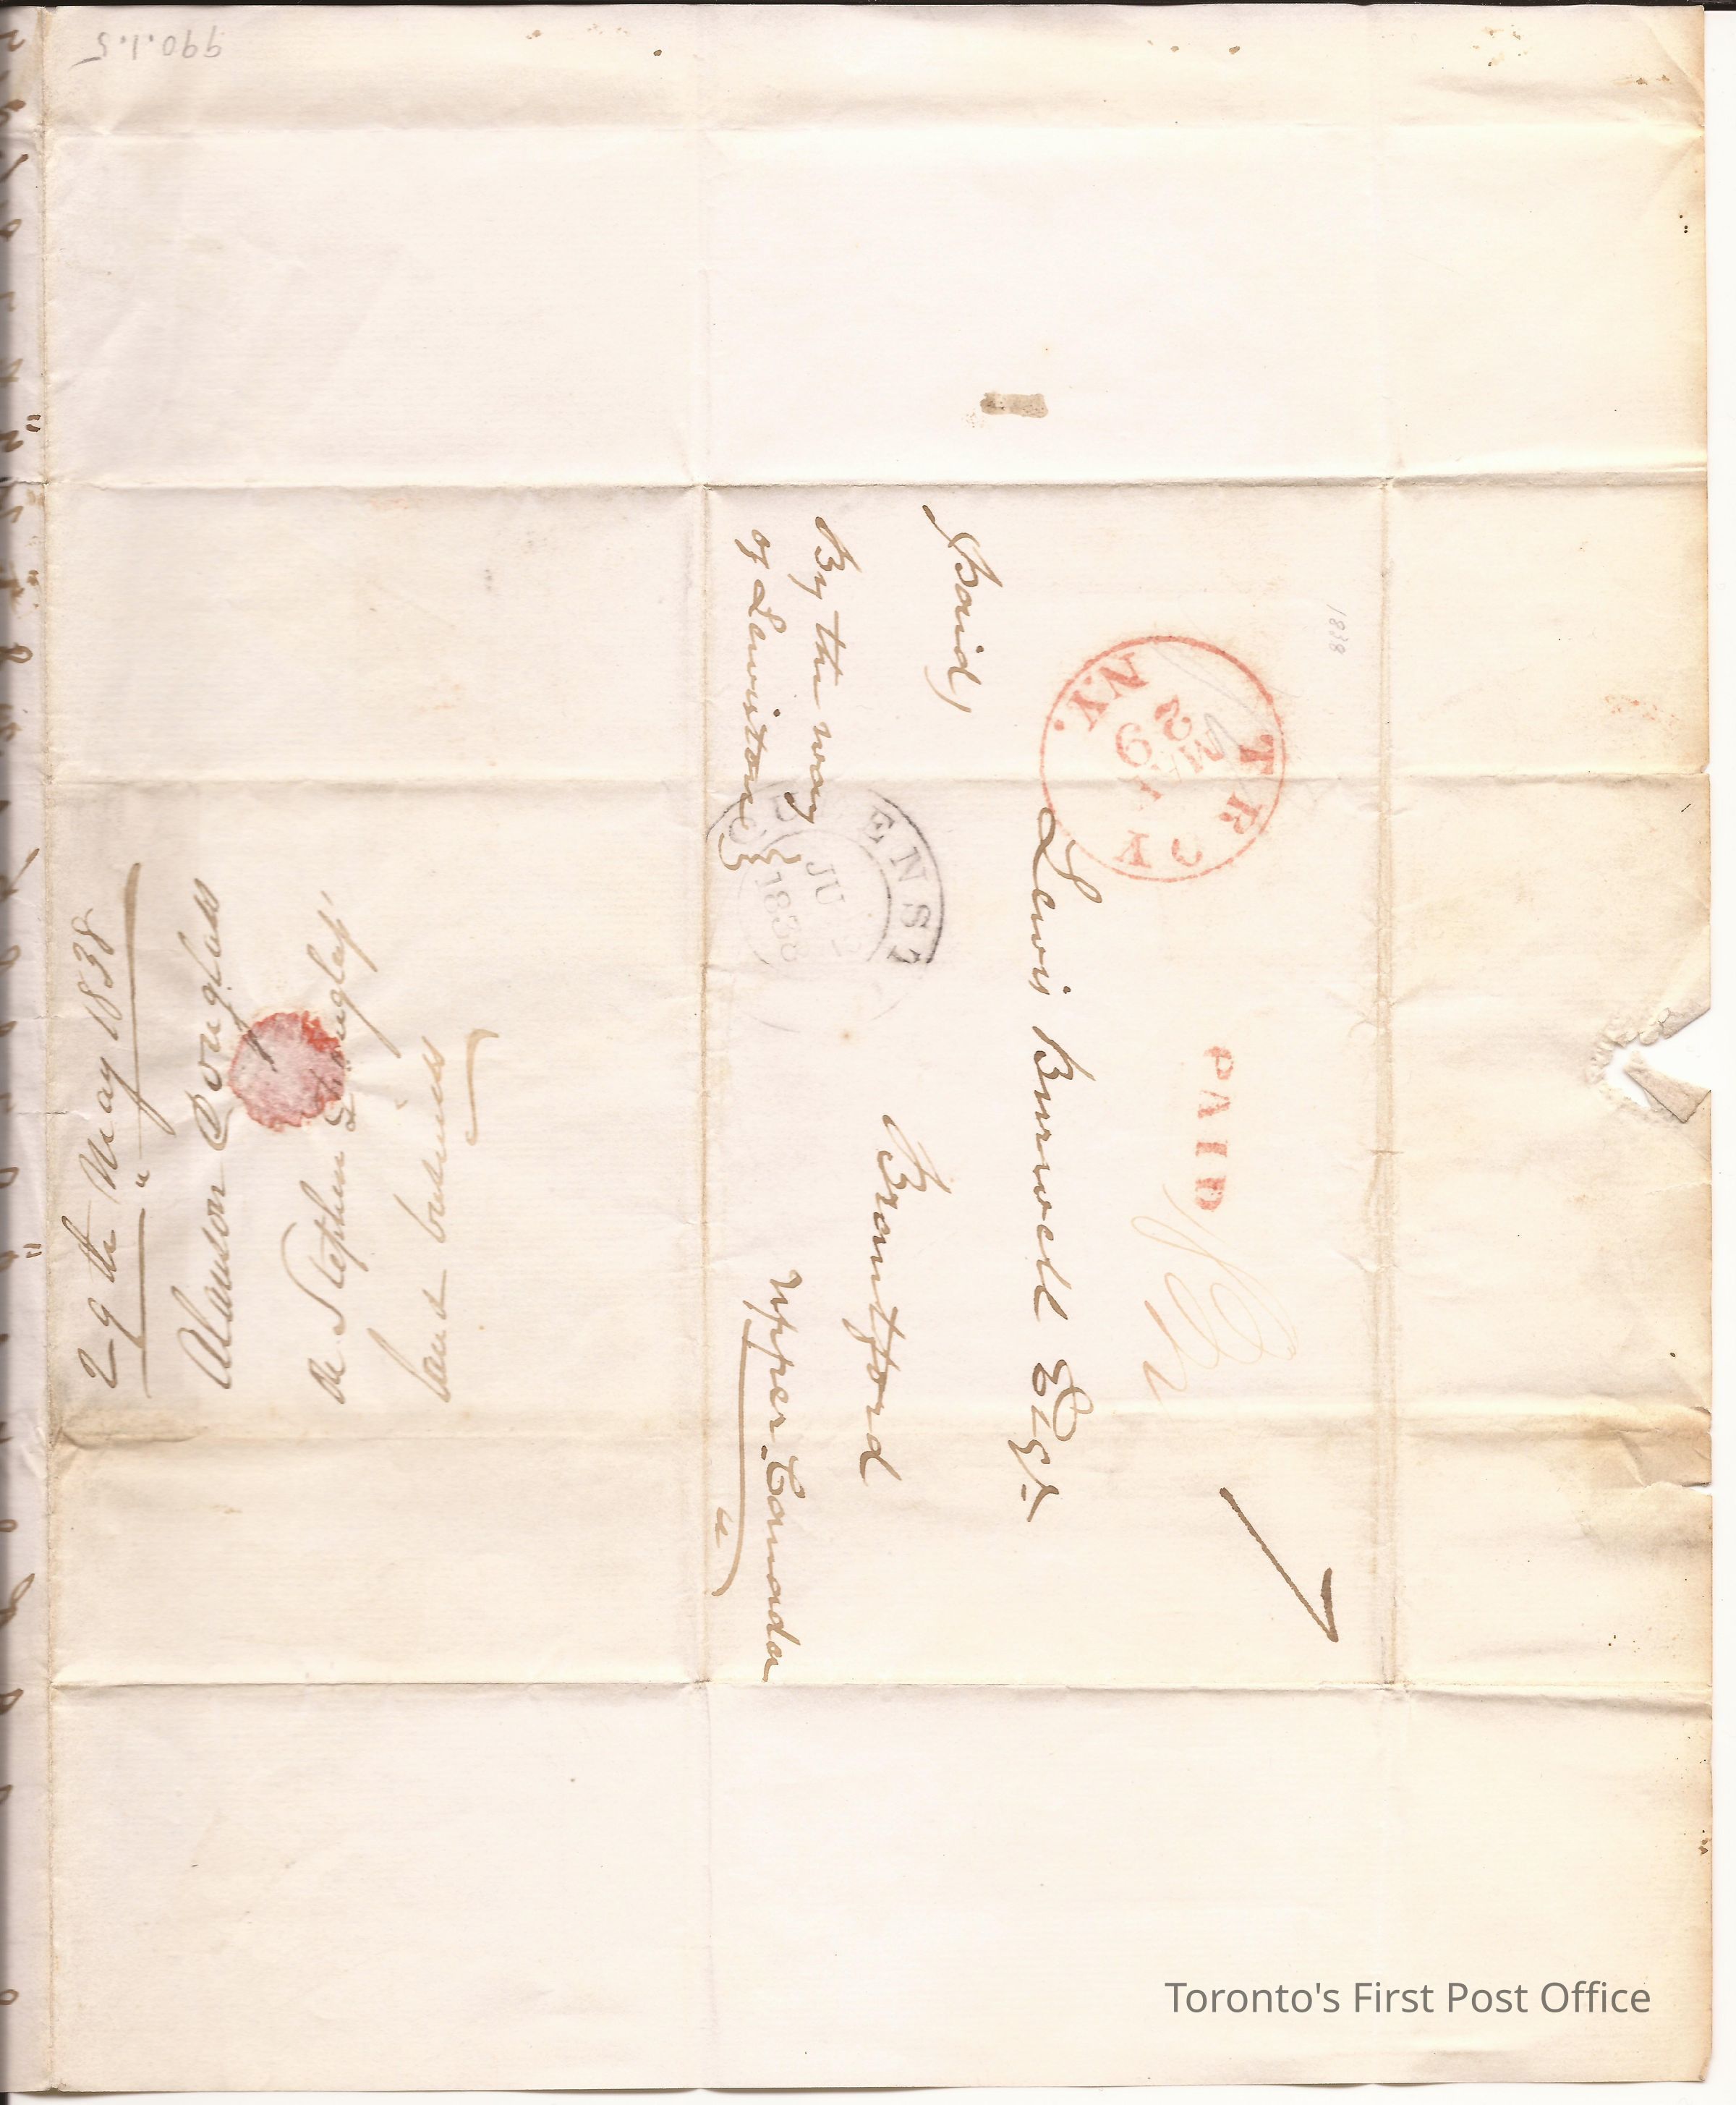 990.1.5
1838
TROY N.Y.
MAY
29
PAID
Lewis Burwell Esqr
Paid
Brantford
Upper Canada
By the way
of Lewiston
QUEENST
JU
1838
29th May 1838
Alanson Douglass
on Stephen Douglass'
land business
Toronto's First Post Office